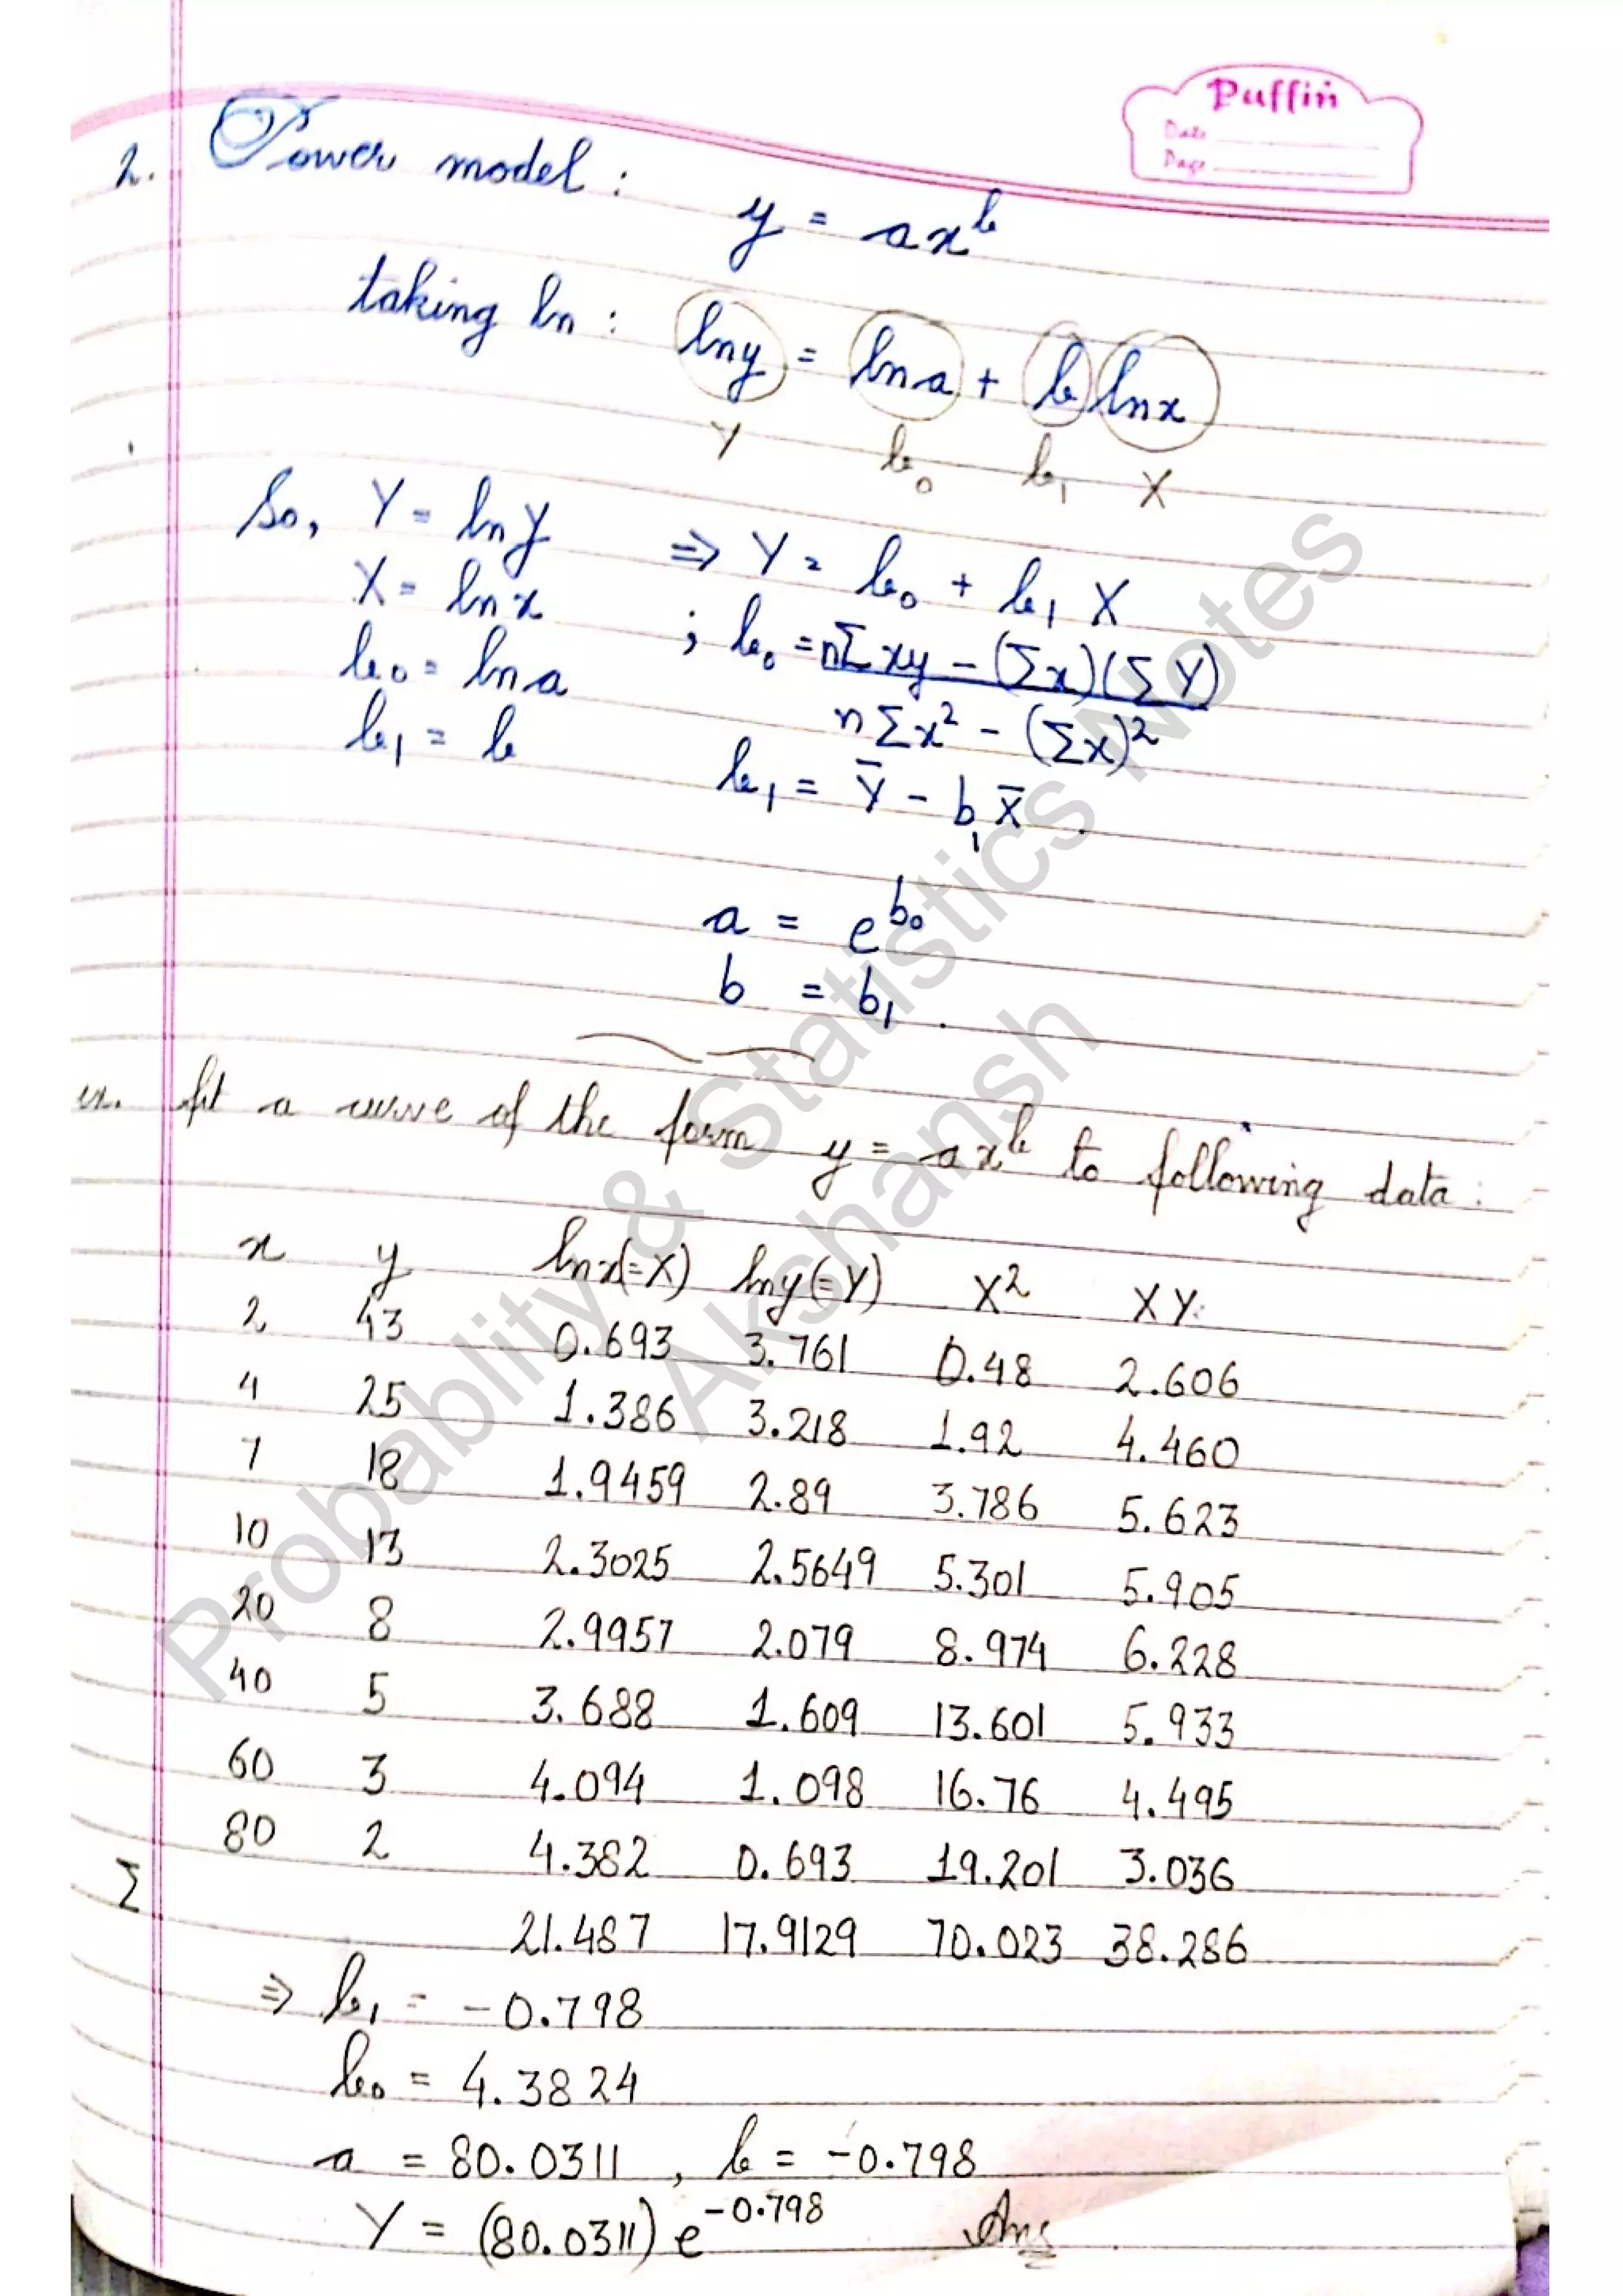 Puffin
Date
Page
2. Power model :
y = ax^b
taking ln : ln y = ln a + b ln x
Y b₀ b₁ X
So, Y = ln y ⇒ Y = b₀ + b₁ X
X = ln x ; b₀ = nΣxy - (Σx)(ΣY)
b₀ = ln a nΣx² - (Σx)²
b₁ = b b₁ = Ȳ - b₁ X̄
a = e^b₀
b = b₁ .
ex. fit a curve of the form y = ax^b to following data :
x y ln x(=X) ln y(=Y) X² XY
2 43 0.693 3.761 0.48 2.606
4 25 1.386 3.218 1.92 4.460
7 18 1.9459 2.89 3.786 5.623
10 13 2.3025 2.5649 5.301 5.905
20 8 2.9957 2.079 8.974 6.228
40 5 3.688 1.609 13.601 5.933
60 3 4.094 1.098 16.76 4.495
80 2 4.382 0.693 19.201 3.036
Σ 21.487 17.9129 70.023 38.286
⇒ b₁ = -0.798
b₀ = 4.3824
a = 80.0311 , b = -0.798
Y = (80.0311) e^-0.798 Ans
Probablity & Statistics Notes
Akshansh